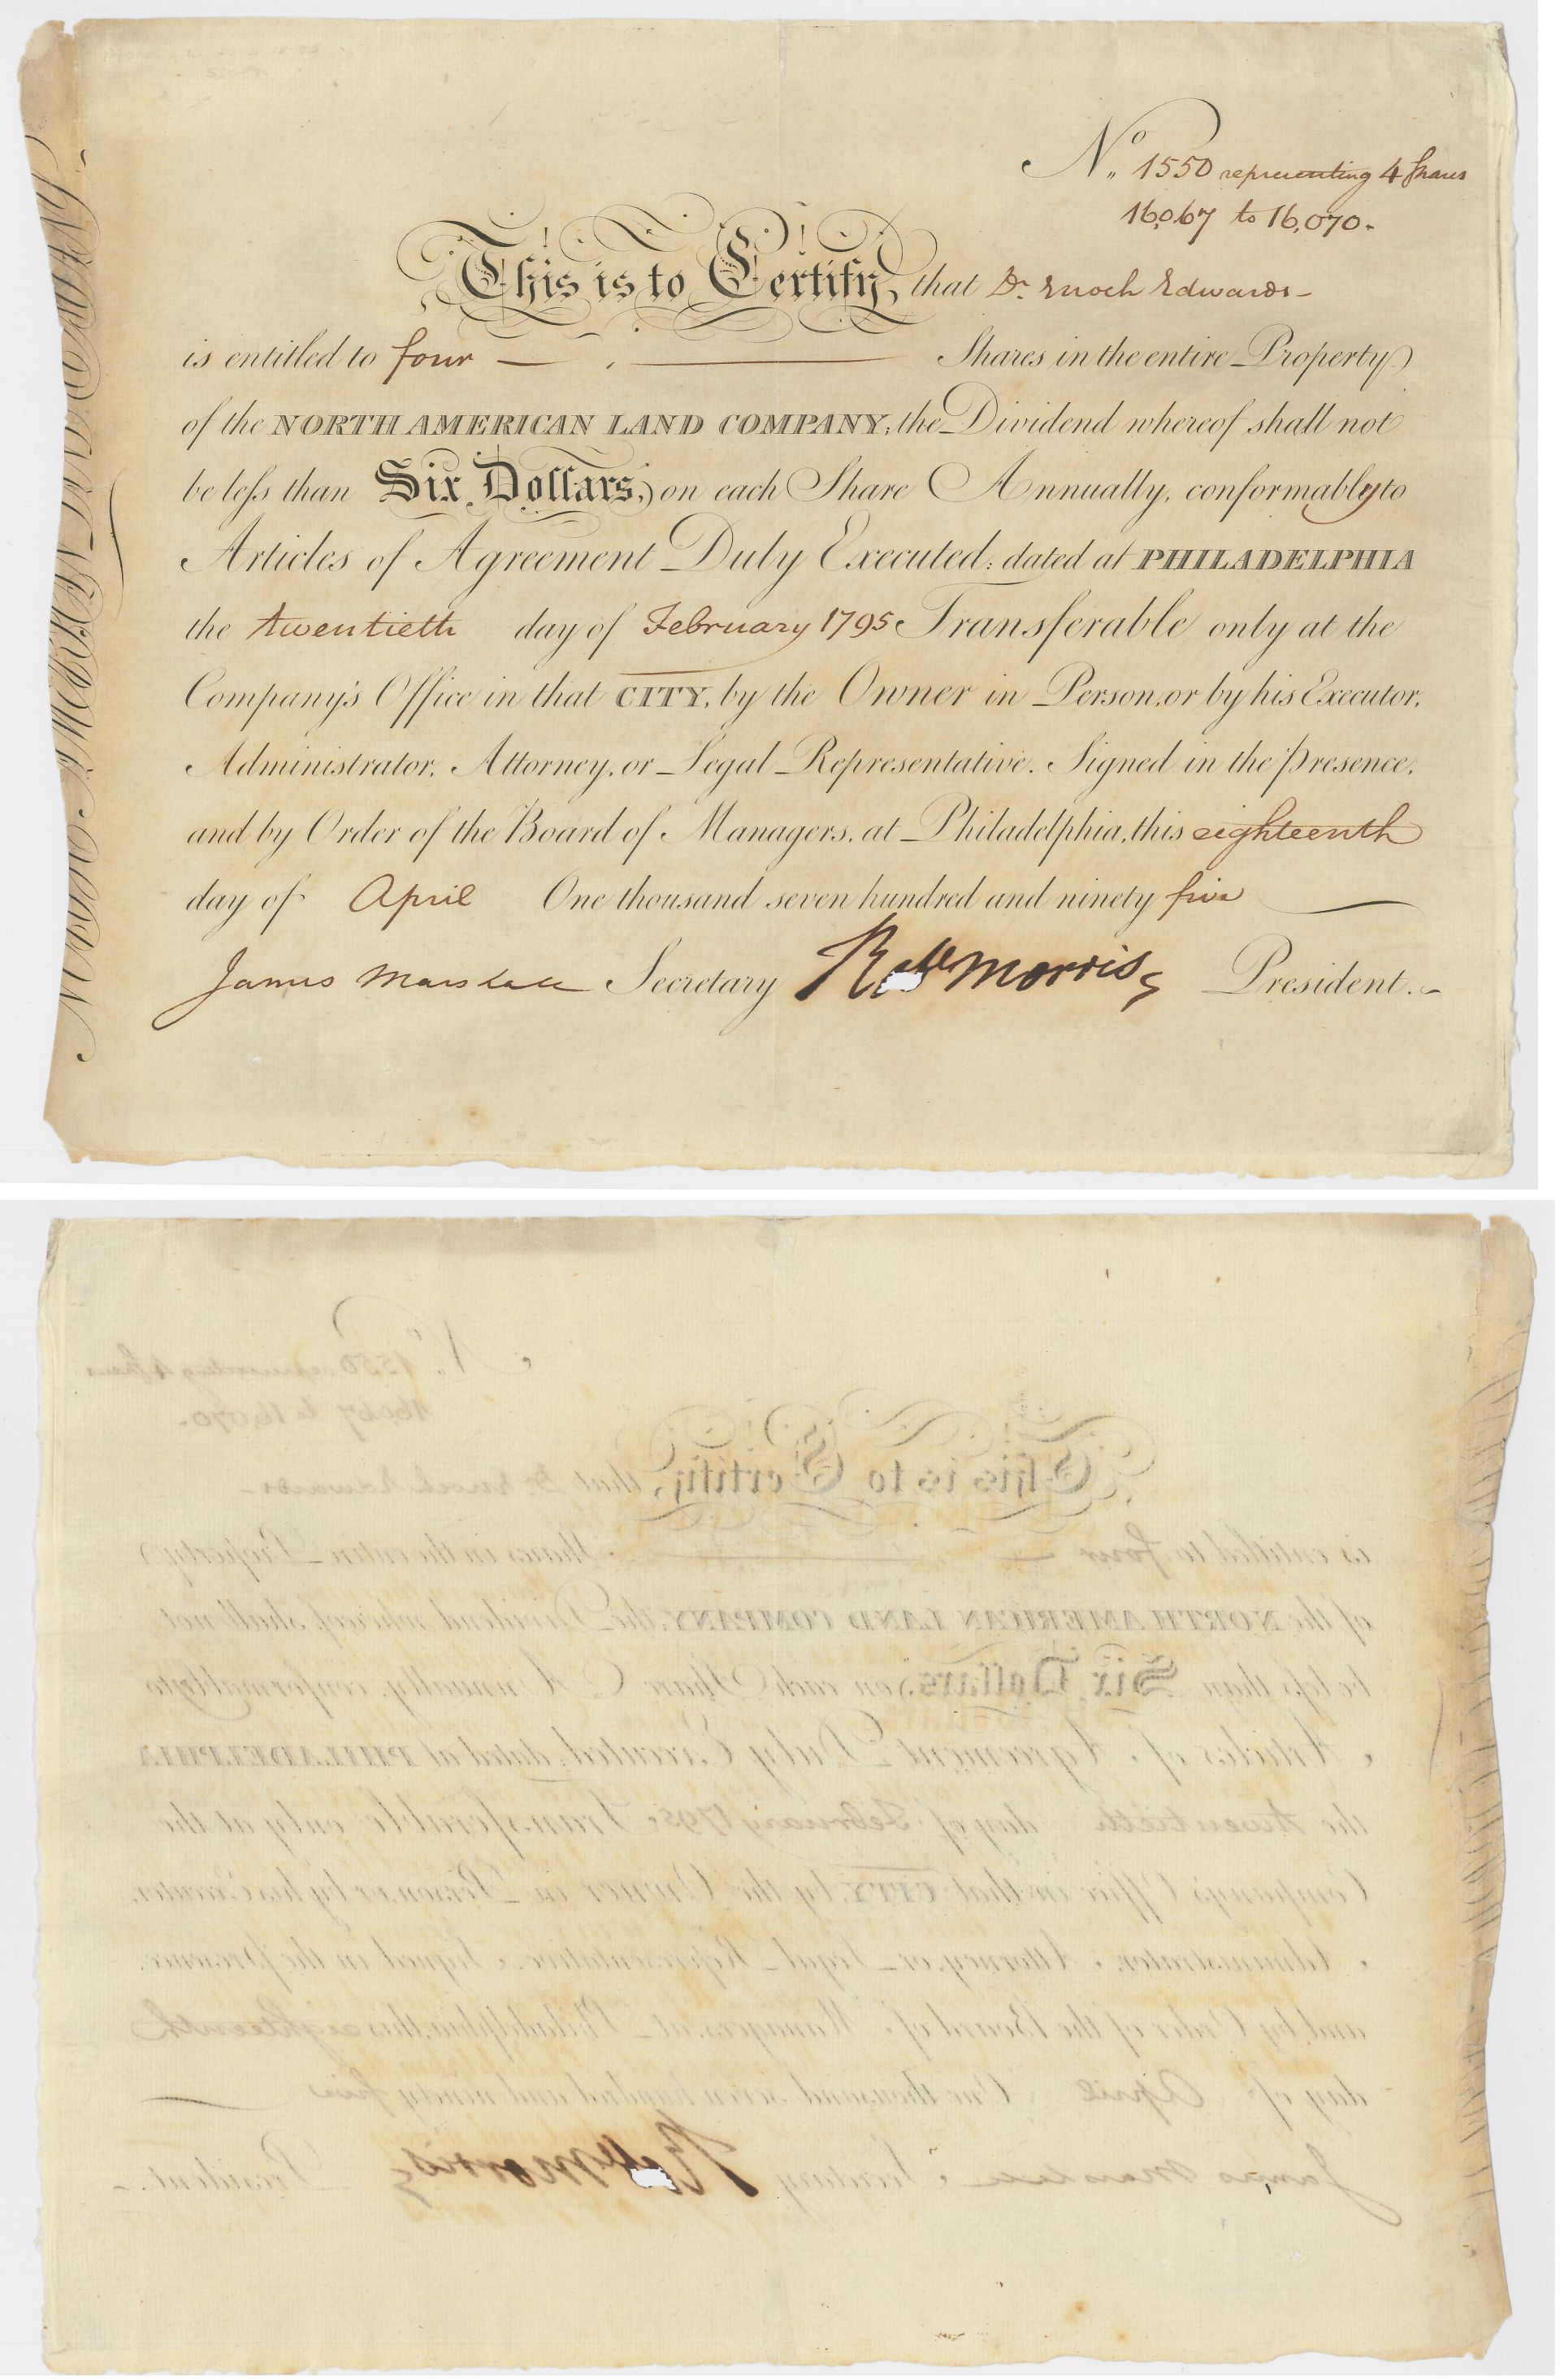 No. 1550 representing 4 Shares
16,067 to 16,070.
This is to Certify, that Dr. Enoch Edwards
is entitled to four Shares in the entire Property
of the NORTH AMERICAN LAND COMPANY; the Dividend whereof shall not
be less than Six Dollars, on each Share Annually, conformably to
Articles of Agreement Duly Executed: dated at PHILADELPHIA
the twentieth day of February 1795 Transferable only at the
Company's Office in that CITY, by the Owner in Person, or by his Executor,
Administrator, Attorney, or Legal Representative. Signed in the presence,
and by Order of the Board of Managers, at Philadelphia, this eighteenth
day of April One thousand seven hundred and ninety five
James Marshall Secretary Robt Morris President.
NORTH AMERICAN LAND COMPANY